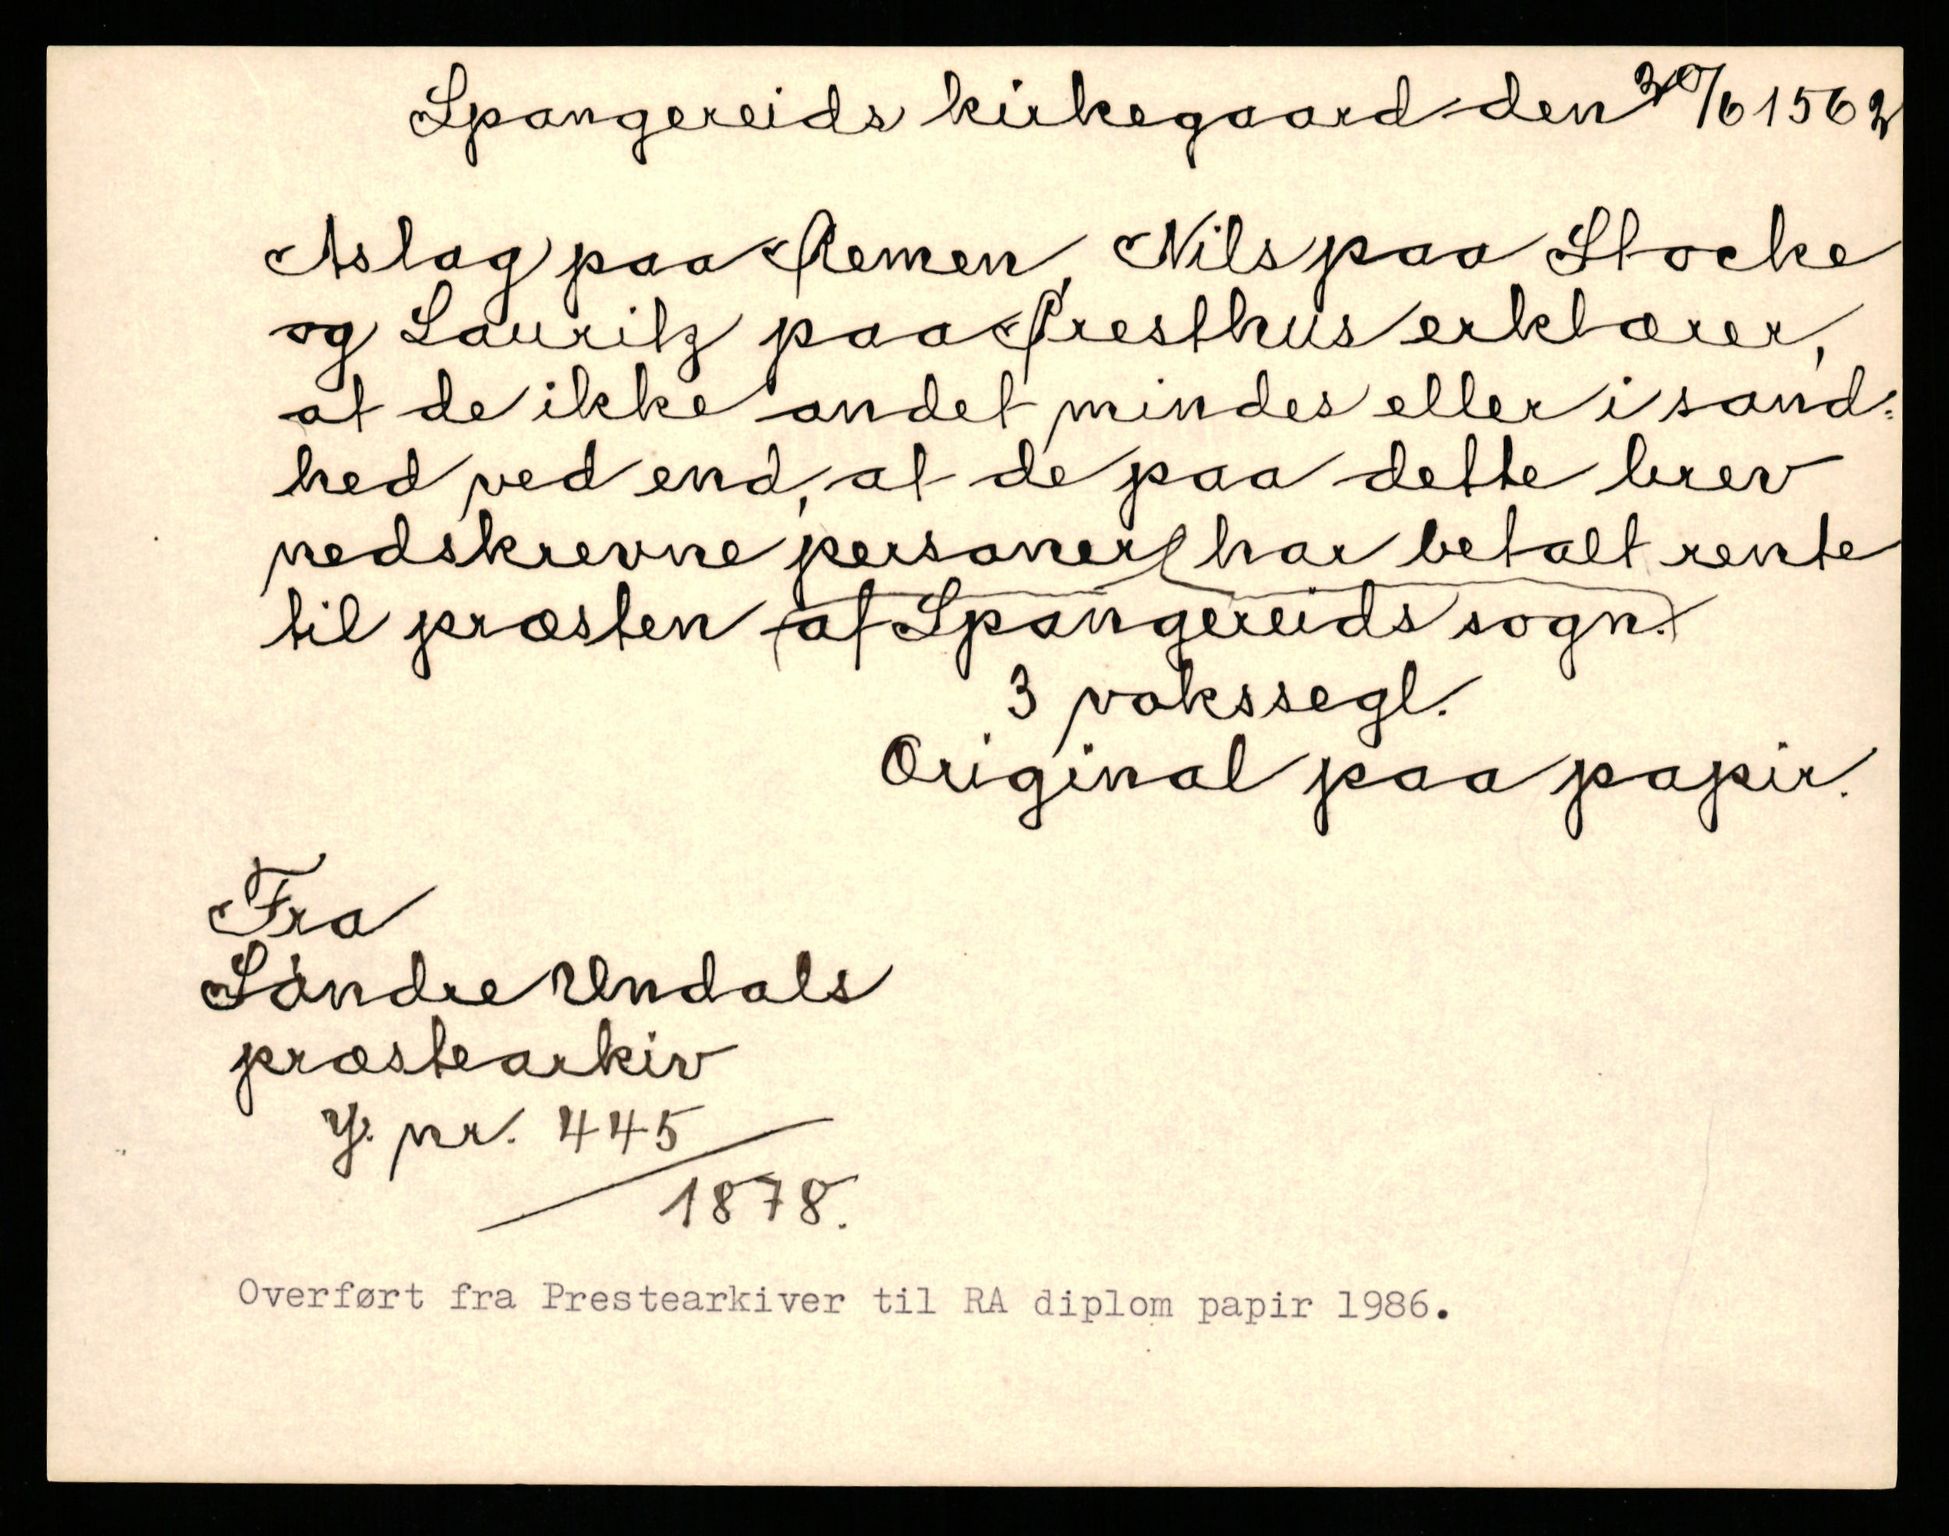 Spangereids kirkegaard den 30/6 1562
Aslag paa Remen, Nils paa Stocke
og Lauritz paa Presthus erklærer,
at de ikke andet mindes eller i sand=
hed ved end, at de paa dette brev
nedskrevne personer har betalt rente
til præsten (af Spangereids sogn.)
3 vokssegl.
Original paa papir.
Fra
Søndre Undals
præstearkiv
J. nr. 445
1878.
Overført fra Prestearkiver til RA diplom papir 1986.